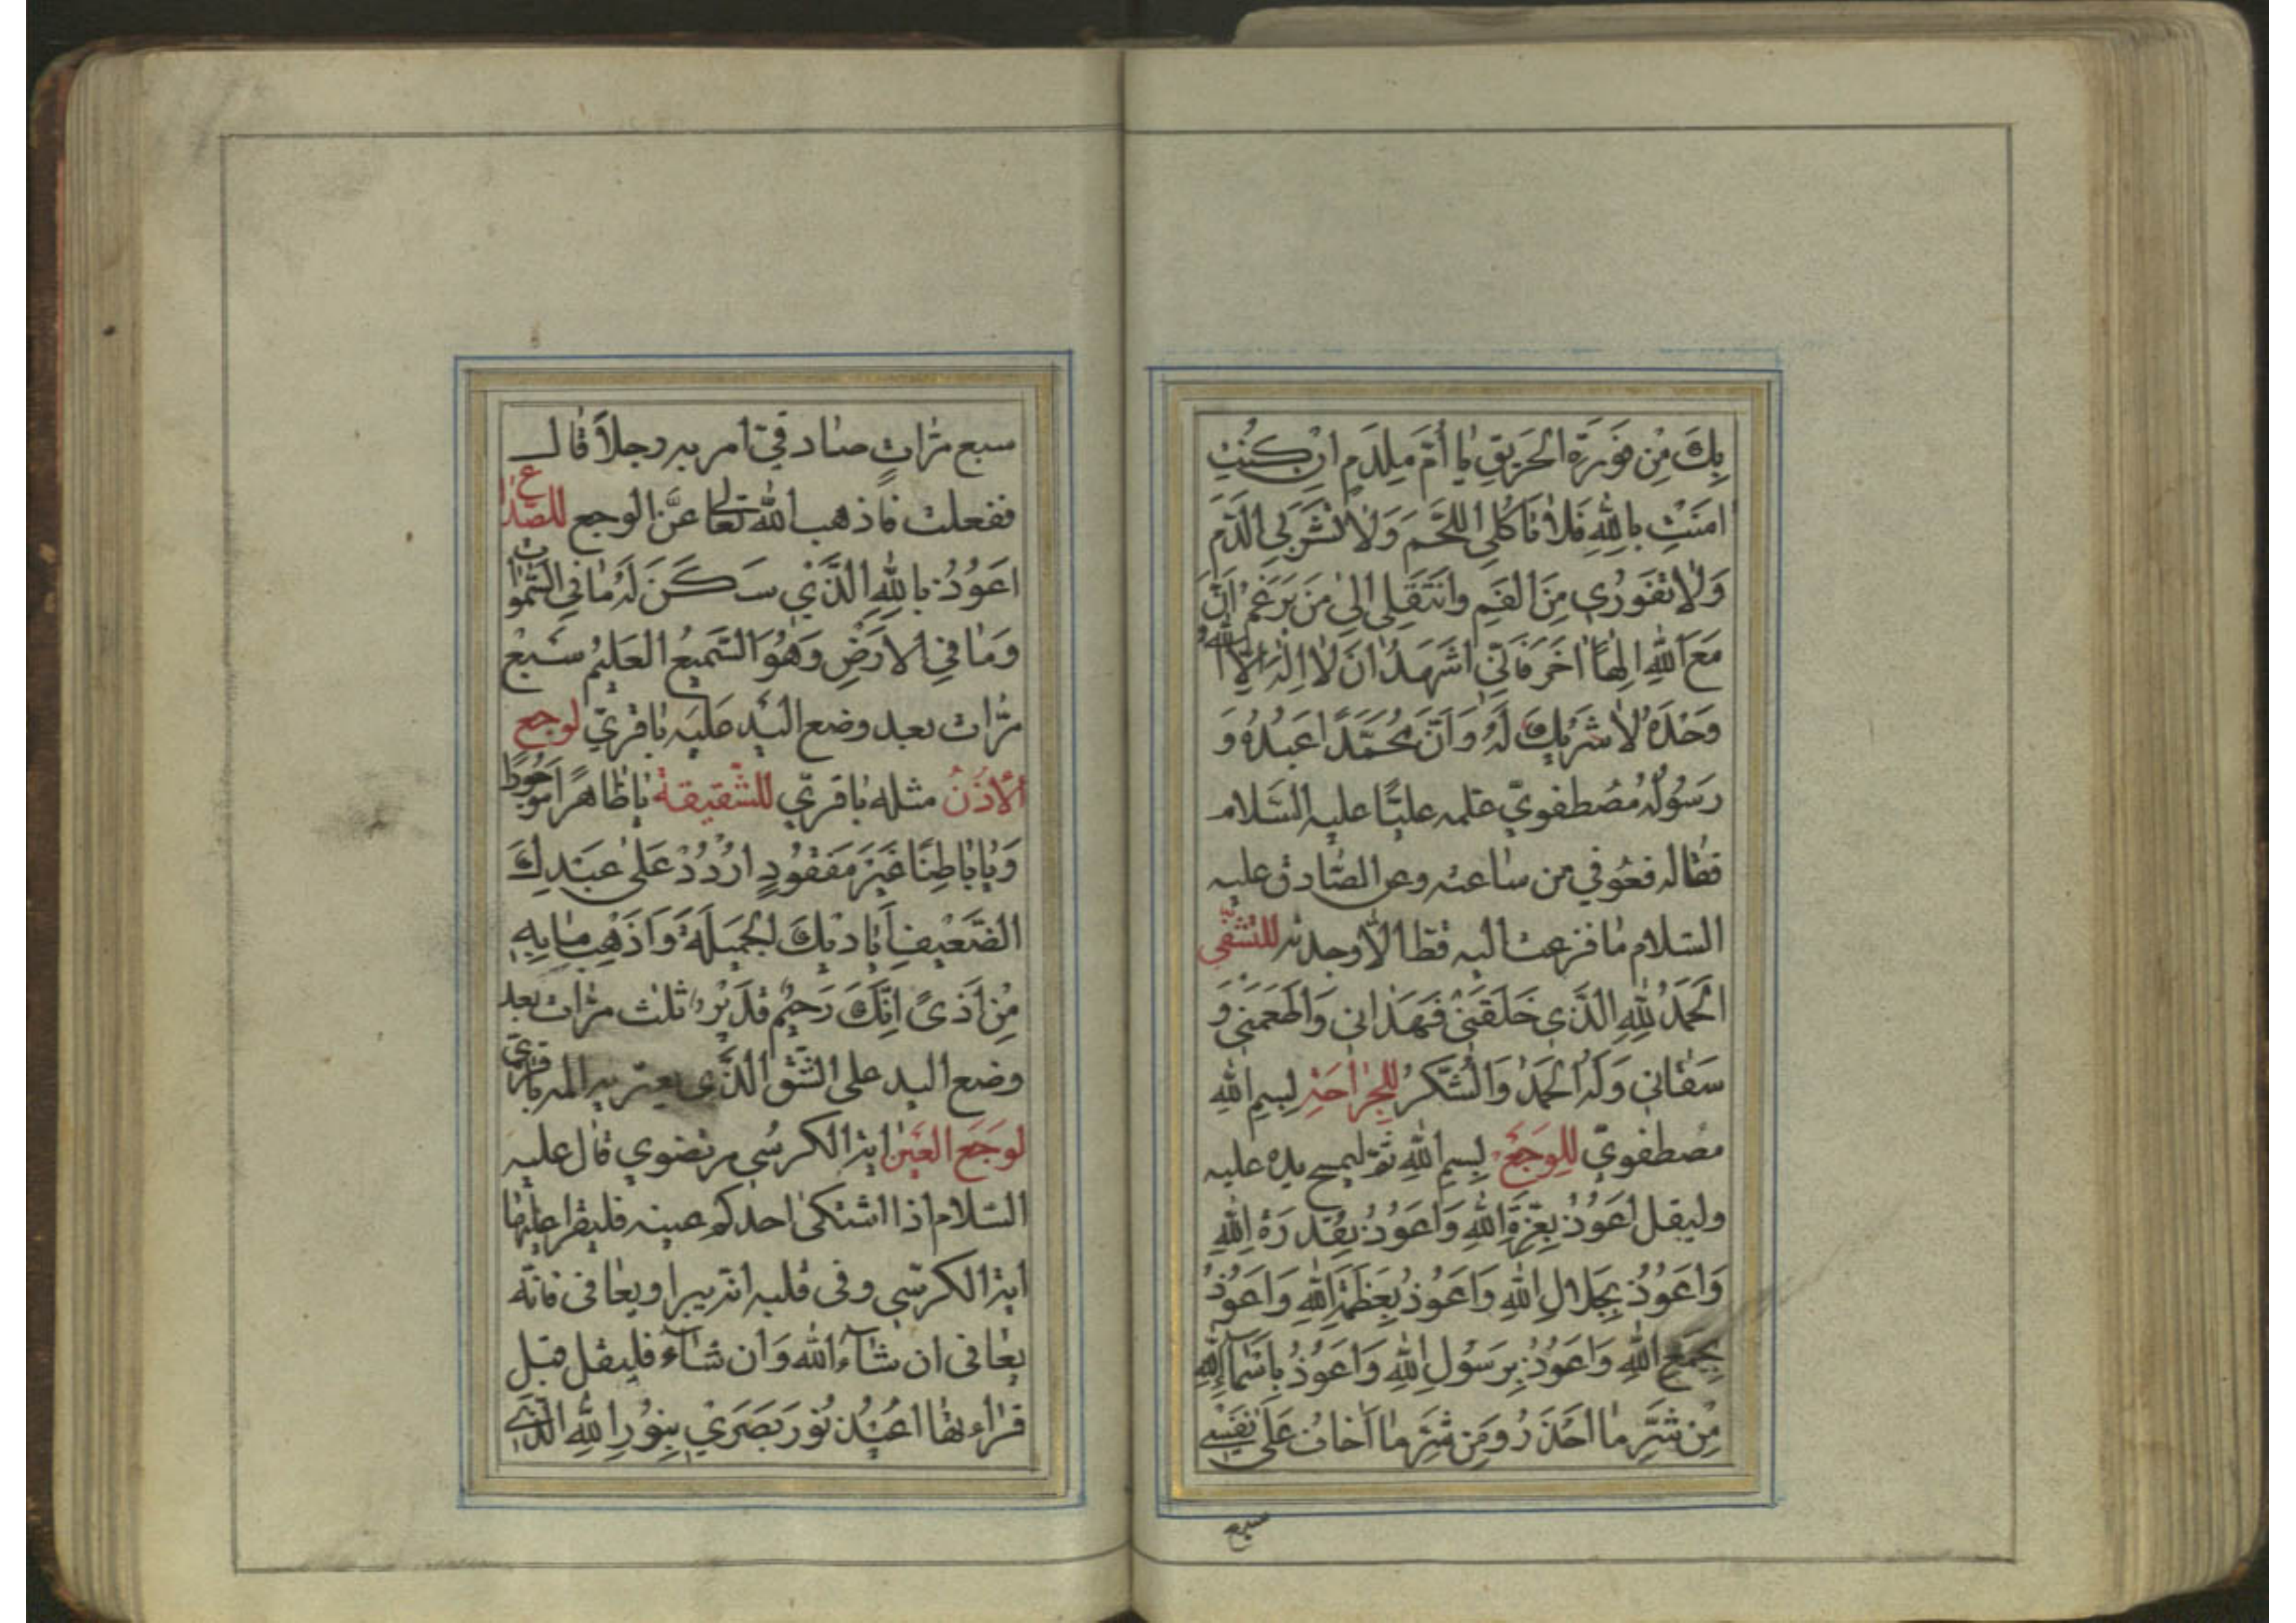 بِكَ مِنْ فَوْرَةِ الْحَرِيقِ يٰا أُمَّ مِلْدَمٍ اِنْ كُنْتِ
اٰمَنْتِ بِاللّٰهِ فَلاٰ تَأكُلِي اللَّحْمَ وَلاٰ تَشْرَبِي الدَّمَ
وَلاٰ تَفُورِي مِنَ الْفَمِ وَانْتَقِلِي اِلىٰ مَنْ يَزْعَمُ اَنَّ
مَعَ اللّٰهِ اِلٰهًا اٰخَرَ فَاِنِّي اَشْهَدُ اَنْ لاٰ اِلٰهَ اِلاَّ اللّٰهُ
وَحْدَهُ لاٰ شَرِيكَ لَهُ وَاَنَّ مُحَمَّدًا عَبْدُهُ وَ
رَسُولُهُ مُصْطَفَوِيّ علمه عليًّا عليه السَّلام
فقاله فعوفي من ساعته وعن الصّادق عليه
السّلام ما فزعت اليه قط الاّ وجدته للتشفّي
اَلْحَمْدُ لِلّٰهِ الَّذِي خَلَقَنِي فَهَدٰانِي وَاَطْعَمَنِي وَ
سَقٰانِي وَلَهُ الْحَمْدُ وَالشُّكْرُ للجراحة بِسْمِ اللّٰهِ
مصطفويّ لِلْوَجَعِ بِسْمِ اللّٰهِ ثمّ ليمسح يده عليه
وليقل اَعُوذُ بِعِزَّةِ اللّٰهِ وَاَعُوذُ بِقُدْرَةِ اللّٰهِ
وَاَعُوذُ بِجَلاٰلِ اللّٰهِ وَاَعُوذُ بِعَظَمَةِ اللّٰهِ وَاَعُوذُ
بِجَمْعِ اللّٰهِ وَاَعُوذُ بِرَسُولِ اللّٰهِ وَاَعُوذُ بِاَسْمٰآءِ اللّٰهِ
مِنْ شَرِّ مٰا اَحْذَرُ وَمِنْ شَرِّ مٰا اَخٰافُ عَلىٰ نَفْسِي
سبع
سبع مرّات صادقيّ امر به رجلاً قال
ففعلت فاذهب الله تعالى عنّي الوجع للصّداع
اَعُوذُ بِاللّٰهِ الَّذِي سَكَنَ لَهُ مٰا فِي السَّمٰوٰاتِ
وَمٰا فِي الاَرْضِ وَهُوَ السَّمِيعُ الْعَلِيمُ سبع
مرّات بعد وضع اليد عليه باقريّ لوجع
الأُذُنُ مثله باقريّ للشّقيقة يٰا ظٰاهِرًا مَوْجُودًا
وَيٰا بٰاطِنًا غَيْرَ مَفْقُودٍ اُرْدُدْ عَلىٰ عَبْدِكَ
الضَّعِيفِ اَيٰادِيكَ الْجَمِيلَةَ وَاَذْهِبْ مٰا بِهِ
مِنْ اَذىً اِنَّكَ رَحِيمٌ قَدِيرٌ ثلث مرّات بعد
وضع اليد على الشّقّ الّذي يعتريه المه باقريّ
لوجع الْعَيْن اية الكرسي مرتضوي قال عليه
السّلام اذا اشتكى احدكم عينه فليقرا عليها
اية الكرسي وفي قلبه انّه يبرا ويعافى فانّه
يعافى ان شآء الله وان شآء فليقل قبل
قراءتها اُعِيذُ نُورَ بَصَرِي بِنُورِ اللّٰهِ الَّذِي